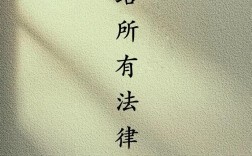 所有法律